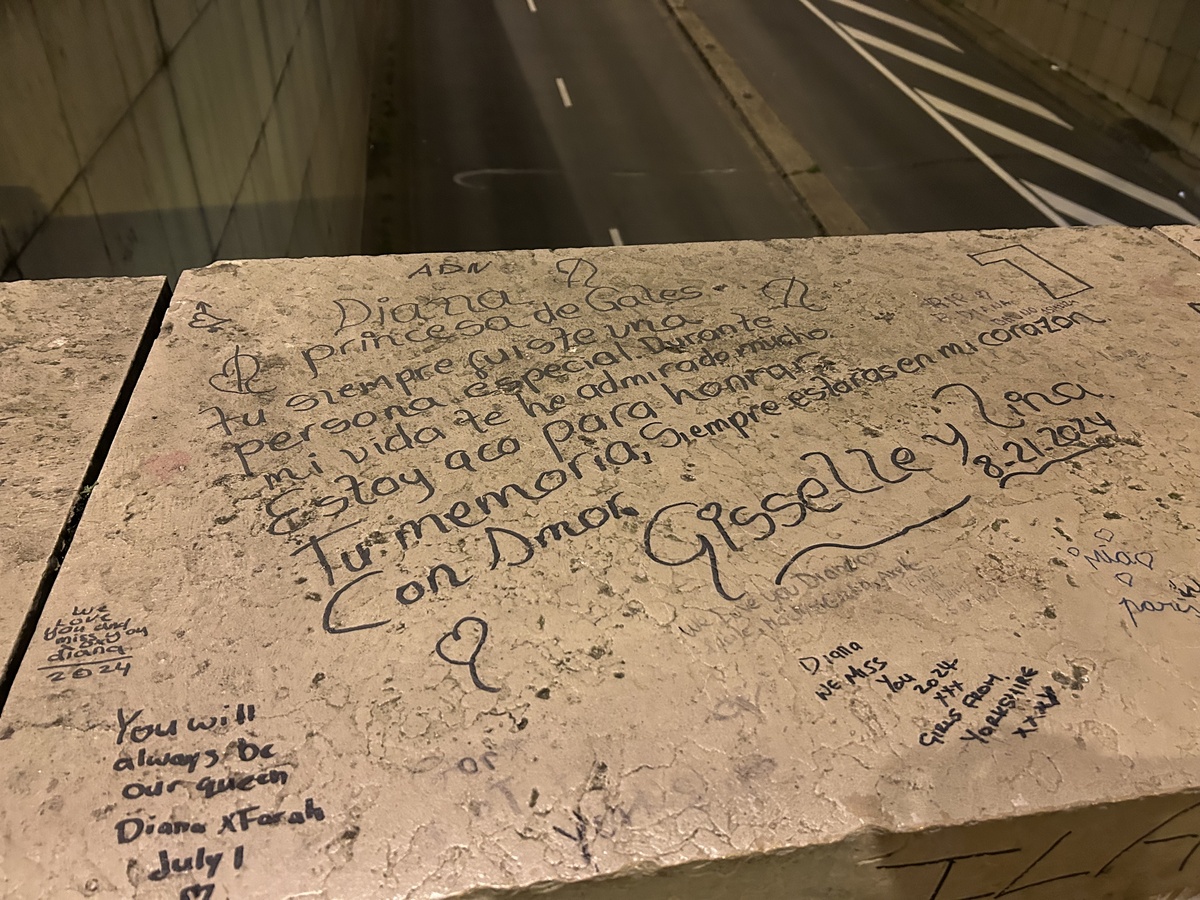 ADN
Diana
princesa de Gales
tu siempre fuiste una
persona especial. Durante
mi vida te he admirado mucho.
Estoy aco para honrar
Tu memoria, Siempre estaras en mi corazon
Con Amor. Gisselle y Lina
8-21-2024
We
Love
You and
miss you
diana
2024
You will
always be
our queen
Diana x Farah
July 1
Diana
WE MISS
You 2024
XXX
GIRLS FROM
YORKSHIRE
we love you
Mia
pari